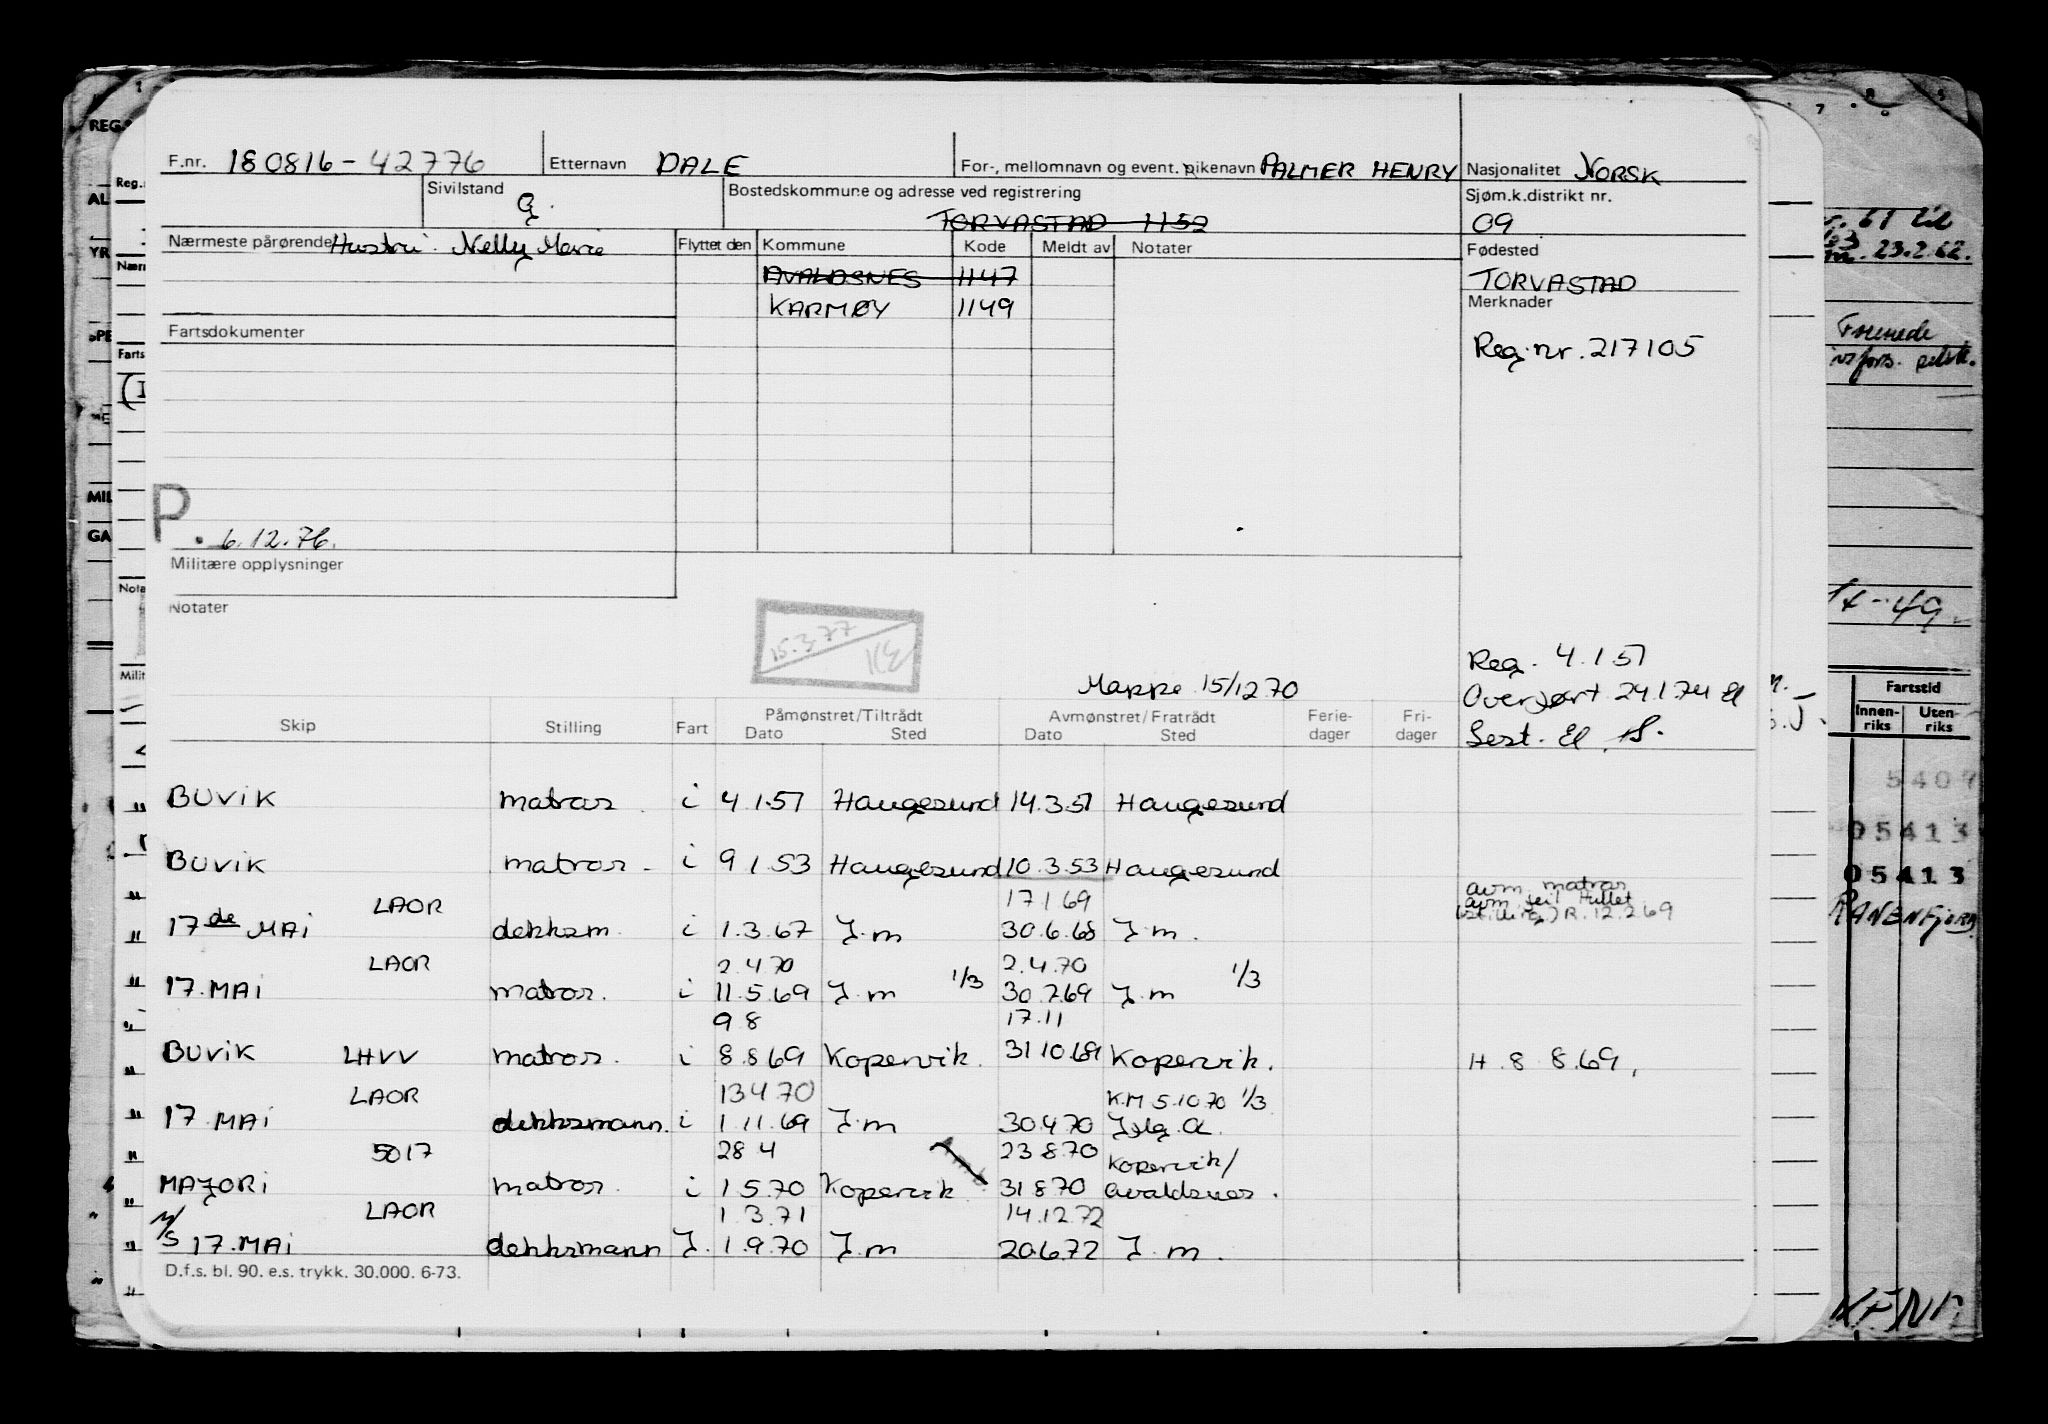 F.nr. 180816-42776 Etternavn DALE For-, mellomnavn og event. pikenavn PALMER HENRY Nasjonalitet NORSK
Sivilstand G. Bostedskommune og adresse ved registrering TORVASTAD 1152 Sjøm.k.distrikt nr. 09
Nærmeste pårørende Hustru Nelly Marie Flyttet den Kommune Kode Meldt av Notater Fødested
AVALDSNES 1147 TORVASTAD
KARMØY 1149 Merknader
Fartsdokumenter Reg.nr. 217105
P. 6.12.76.
Militære opplysninger
Notater
15.3.77
Reg. 4.1 51
Mappe 15/12 70 Overført 24.1.74 El
Skip Stilling Fart Påmønstret/Tiltrådt Dato Sted Avmønstret/Fratrådt Dato Sted Ferie-dager Fri-dager Sest. El
BUVIK matros i 4.1.51 Haugesund 14.3.51 Haugesund
BUVIK matros i 9 1.53 Haugesund 10.3.53 Haugesund
LAOR 17 1 69 avm. matros
17de MAI dekksm. i 1.3.67 J.m 30.6.68 J.m. R. 12.2.69
LAOR 2.4.70 2.4.70
17.MAI matros. i 11.5.69 J.m 1/3 30.7.69 J.m 1/3
9 8 17.11
BUVIK LHVV matros. i 8.8.69 Kopervik. 31.10.69 Kopervik. H. 8 8.69,
LAOR 13 4 70 K.M 5.10 70 1/3
17 MAI dekksmann. i 1.11.69 J.m 30.4.70
5017 28 4 23 8.70 Kopervik/
MAJORI matros. i 1 5.70 Kopervik 31 8.70 Avaldsnes.
LAOR 1 3.71 14.12.72
M/S 17.MAI dekksmann J. 1.9.70 J.m 20.6.72 J.m.
D.f.s. bl. 90. e.s. trykk. 30.000. 6-73.
23.2.62.
Fartstid
Innen-riks Uten-riks
05413
05413
RANENFJORD